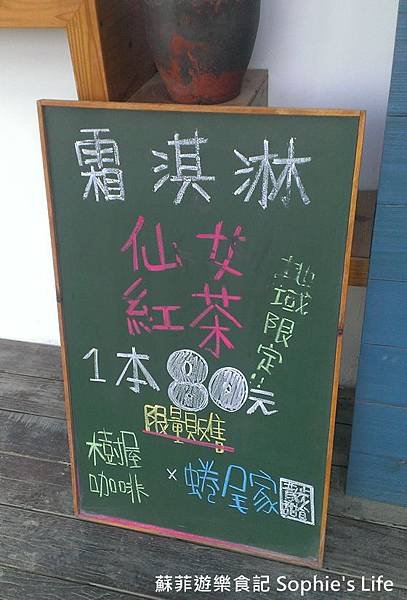 霜淇淋
仙女
紅茶
地域限定!!
1本80元
限量販售
樹屋
咖啡
×蜷尾家
蘇菲遊樂食記 Sophie's Life